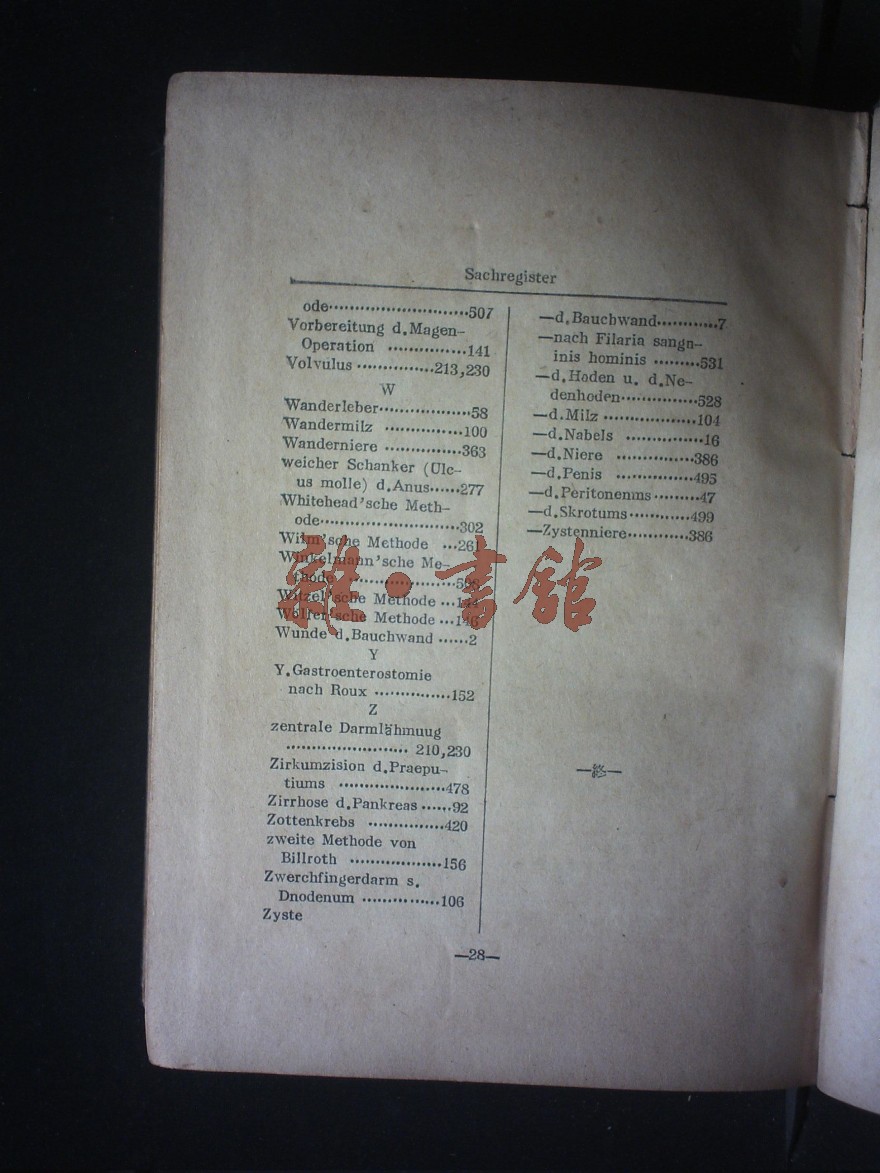 Sachregister
ode·························507
Vorbereitung d.Magen-
Operation ···············141
Volvulus ···············213,230
W
Wanderleber··················58
Wandermilz ···············100
Wanderniere ···············363
weicher Schanker (Ulc-
us molle) d.Anus······277
Whitehead'sche Meth-
ode···························302
Wilm'sche Methode ···261
Winkelmann'sche Me-
thode
Witzel'sche Methode ···144
Wölfer'sche Methode ···146
Wunde d.Bauchwand ······2
Y
Y.Gastroenterostomie
nach Roux ···············152
Z
zentrale Darmlähmuug
························ 210,230
Zirkumzision d.Praepu-
tiums ·····················478
Zirrhose d.Pankreas ······92
Zottenkrebs ···············420
zweite Methode von
Billroth ··················156
Zwerchfingerdarm s.
Dnodenum ···············106
Zyste
—d.Bauchwand············7
—nach Filaria sangn-
inis hominis ·········531
—d.Hoden u. d.Ne-
denhoden···············528
—d.Milz ··················104
—d.Nabels ···············16
—d.Niere ···············386
—d.Penis ···············495
—d.Peritonenms·········47
—d.Skrotums············499
—Zystenniere············386
—終—
—28—
雜·書舘